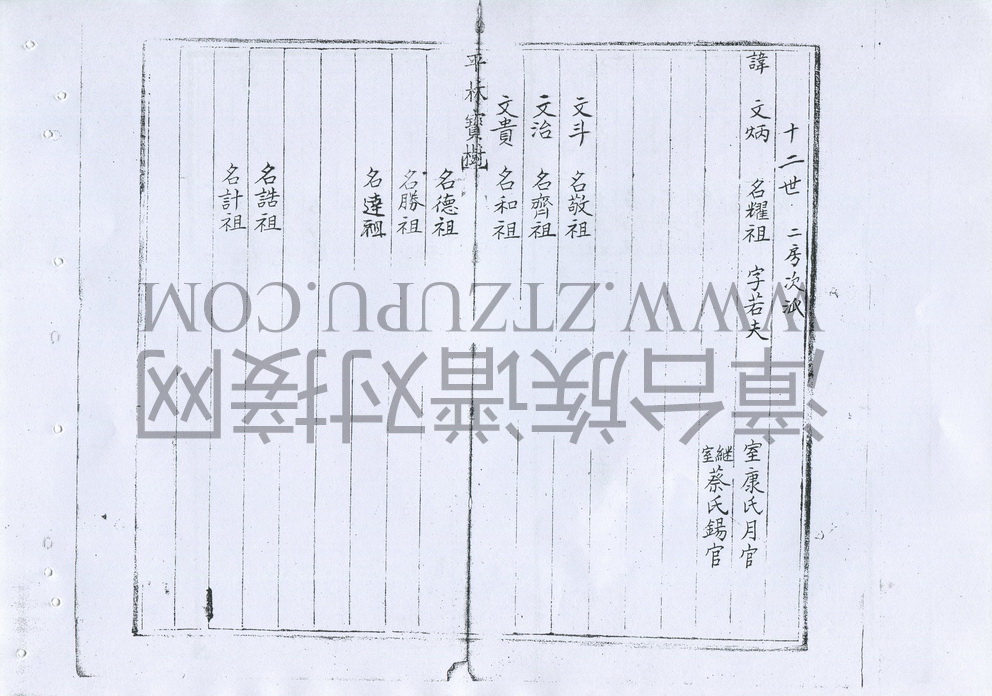 十二世 二房次派
諱 文炳 名耀祖 字若夫 室康氏月官
繼室蔡氏錫官
文斗 名敬祖
文治 名齊祖
文貴 名和祖
平林寶樹
名德祖
名勝祖
名達祖
名誥祖
名計祖
WWW.ZTZUPU.COM
漳台族谱对接网